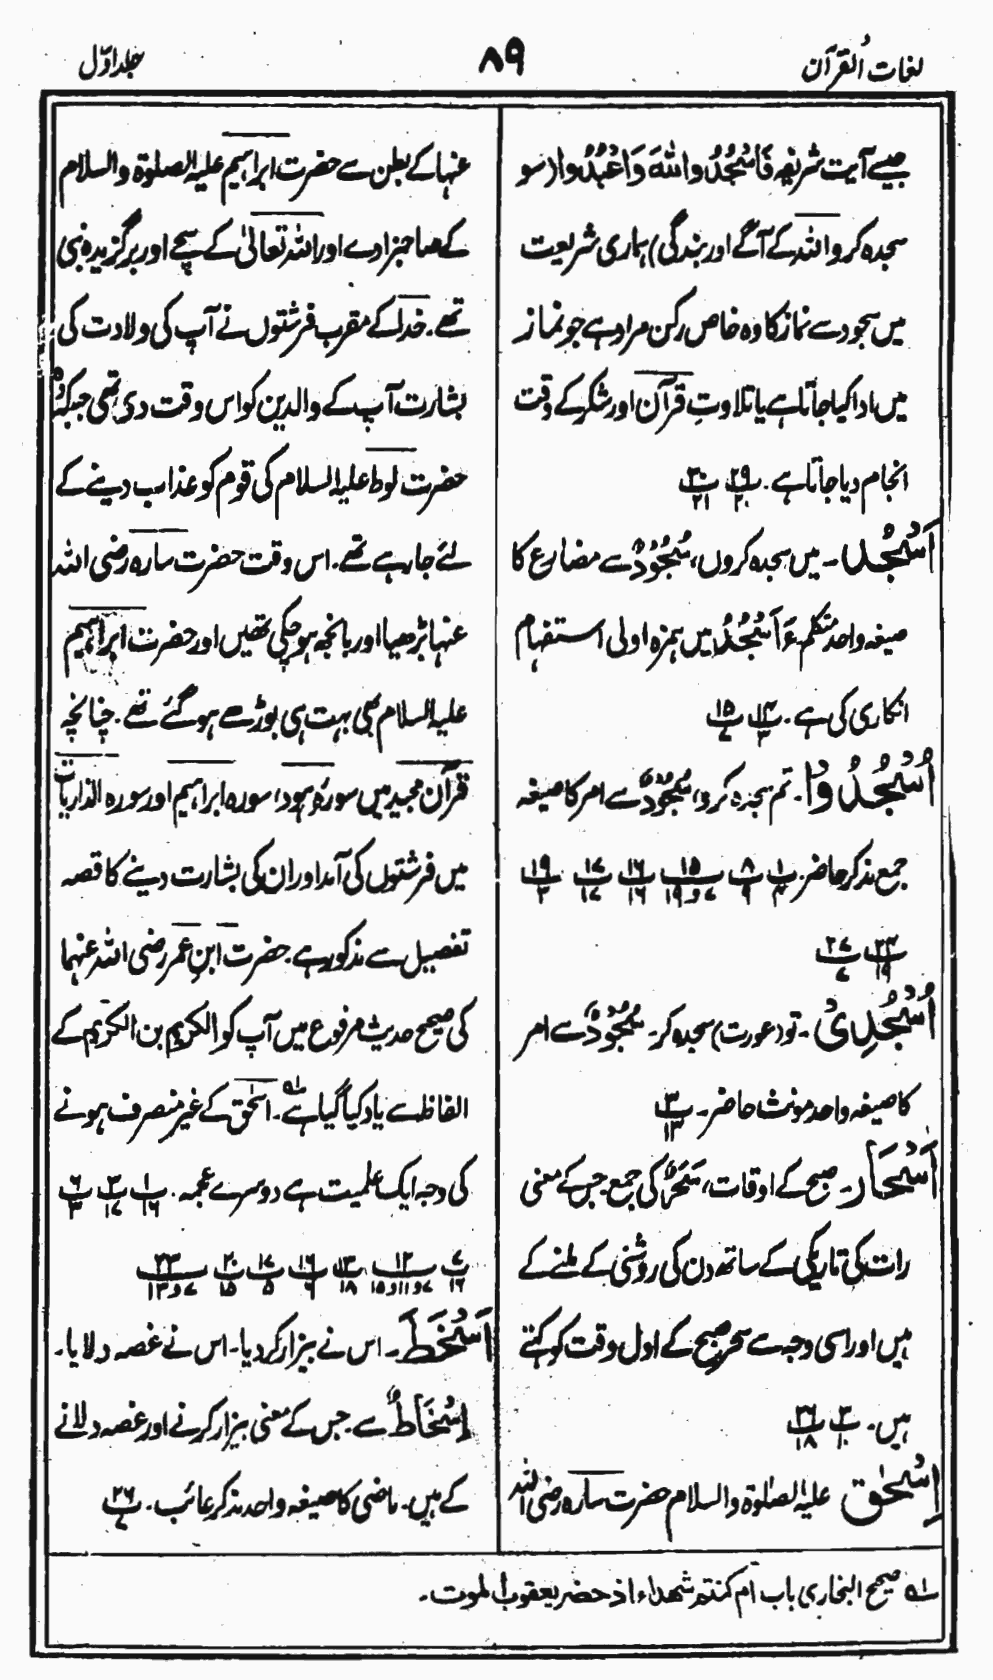 لغات القرآن
۸۹
جلد اوّل
جیسے آیت شریفہ فَاسْجُدُوا لِلّٰهِ وَاعْبُدُوا (سو
سجدہ کرو اللہ کے آگے اور بندگی) ہماری شریعت
میں سجود سے نماز کا وہ خاص رکن مراد ہے جو نماز
میں ادا کیا جاتا ہے یا تلاوتِ قرآن اور شکر کے وقت
انجام دیا جاتا ہے۔ ۲۹/۲۰ ۳۰/۲۱
اَسْجُدُ۔ میں سجدہ کروں، سُجُوْدٌ سے مضارع کا
صیغہ واحد متکلم ءَاَسْجُدُ میں ہمزہ اولی استفہام
انکاری کی ہے۔ ۱۴/۳ ۱۵/۷
اُسْجُدُوْا۔ تم سجدہ کرو، سُجُوْدٌ سے امر کا صیغہ
جمع مذکر حاضر۔ ۱/۴ ۸/۹ ۱۵/۷و۱۹ ۱۶/۱۶ ۱۷/۱۷ ۱۹/۳
۲۴/۱۹ ۲۷/۷
اُسْجُدِیْ۔ تو (عورت) سجدہ کر۔ سُجُوْدٌ سے امر
کا صیغہ واحد مونث حاضر۔ ۳/۱۳
اَسْحَار۔ صبح کے اوقات، سَحَرٌ کی جمع جس کے معنی
رات کی تاریکی کے ساتھ دن کی روشنی کے ملنے کے
ہیں اور اسی وجہ سے سحر صبح کے اول وقت کو کہتے
ہیں۔ ۳/۱۰ ۲۶/۱۸
اِسْحٰق علیہ الصلوٰۃ والسلام حضرت سارہ رضی اللہ
عنہا کے بطن سے حضرت ابراہیم علیہ الصلوۃ والسلام
کے صاحبزادے اور اللہ تعالیٰ کے سچے اور برگزیدہ نبی
تھے۔ خدا کے مقرب فرشتوں نے آپ کی ولادت کی
بشارت آپ کے والدین کو اس وقت دی تھی جبکہ وہ
حضرت لوط علیہ السلام کی قوم کو عذاب دینے کے
لئے جا رہے تھے۔ اس وقت حضرت سارہ رضی اللہ
عنہا بڑھیا اور بانجھ ہو چکی تھیں اور حضرت ابراہیم
علیہ السلام بھی بہت ہی بوڑھے ہو گئے تھے۔ چنانچہ
قرآن مجید میں سورہ ہود، سورہ ابراہیم اور سورہ الذاریات
میں فرشتوں کی آمد اور ان کی بشارت دینے کا قصہ
تفصیل سے مذکور ہے۔ حضرت ابنِ عمر رضی اللہ عنہما
کی صحیح حدیث مرفوع میں آپ کو الکریم بن الکریم کے
الفاظ سے یاد کیا گیا ہے ۱ھ۔ اسحٰق کے غیر منصرف ہونے
کی وجہ ایک علمیت ہے دوسرے عجمہ۔ ۱/۱۶ ۳/۱۷ ۶/۳
۷/۱۶ ۱۲/۷و۱۱و۱۵ ۱۳/۱۸ ۱۶/۶ ۱۷/۵ ۲۰/۱۵ ۲۳/۷و۱۳
اَسْخَطَ۔ اس نے بیزار کر دیا۔ اس نے غصہ دلایا۔
اِسْخَاطٌ سے۔ جس کے معنی بیزار کرنے اور غصہ دلانے
کے ہیں۔ ماضی کا صیغہ واحد مذکر غائب۔ ۲۶/۷
۱ھ صحیح البخاری باب ام کنتم شھداء اذ حضر یعقوب الموت۔